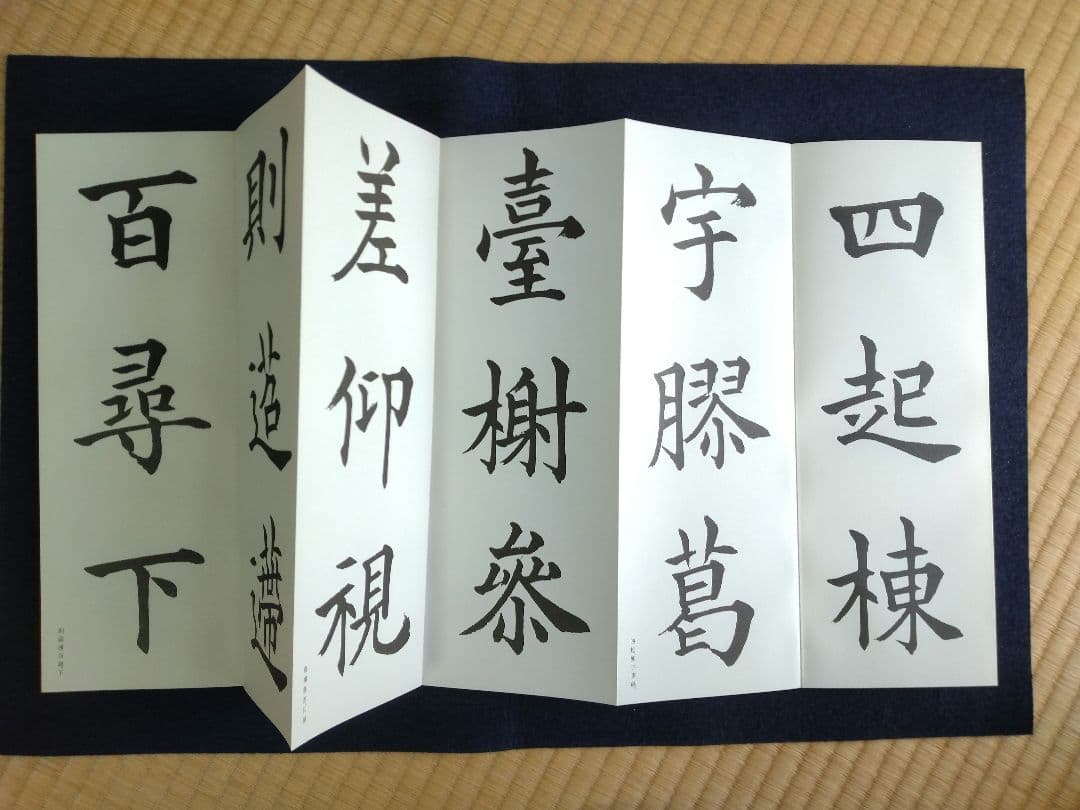 四起棟
宇膠葛
臺榭參
差仰視
則迢遰
百尋下